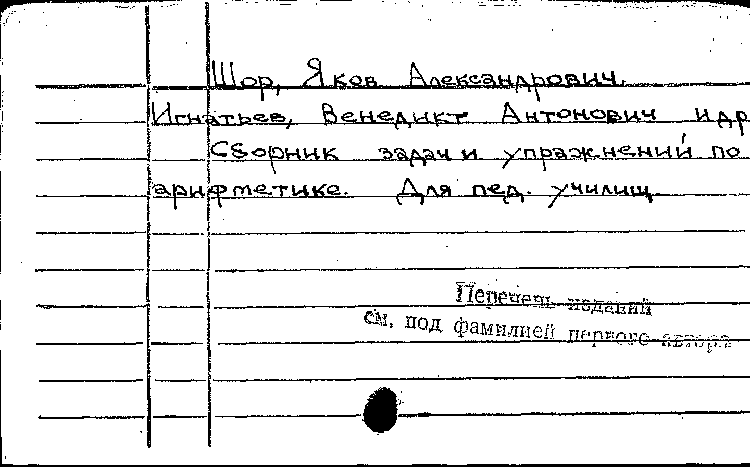 Шор, Яков Александрович.
Игнатьев, Венедикт Антонович и др
Сборник задач и упражнений по
арифметике. Для пед. училищ.
Перечень изданий
см. под фамилией первого автора